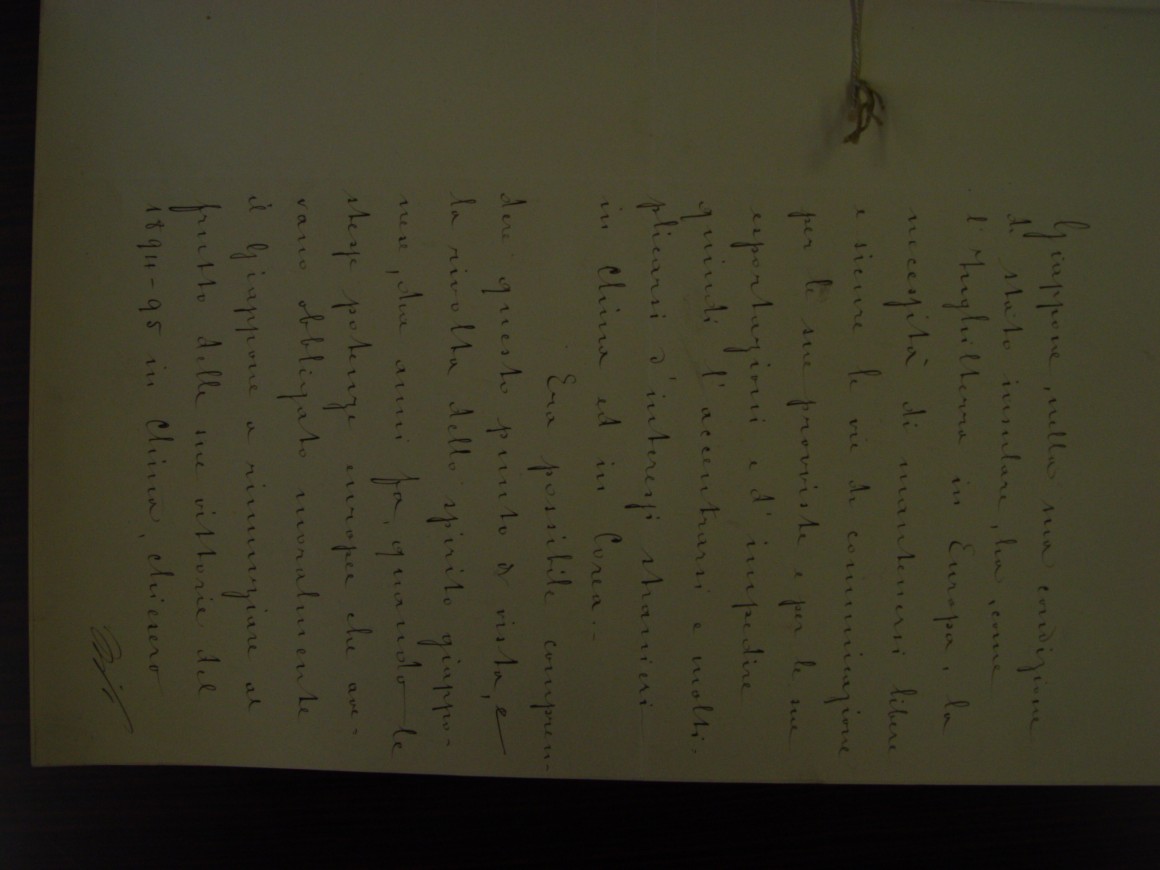 Giappone, nella sua condizione
di stato insulare, ha, come
l'Inghilterra in Europa, la
necessità di mantenersi libere
e sicure le vie di comunicazione
per le sue provviste e per le sue
esportazioni e d'impedire
quindi l'accentrarsi e molti-
plicarsi d'interessi stranieri
in China ed in Corea.-
Era possibile compren-
dere questo punto di vista, e
la rivolta dello spirito giappo-
nese, due anni fa, quando le
stesse potenze europee che ave-
vano obbligato moralmente
il Giappone a rinunziare al
frutto delle sue vittorie del
1894-95 in China, chiesero